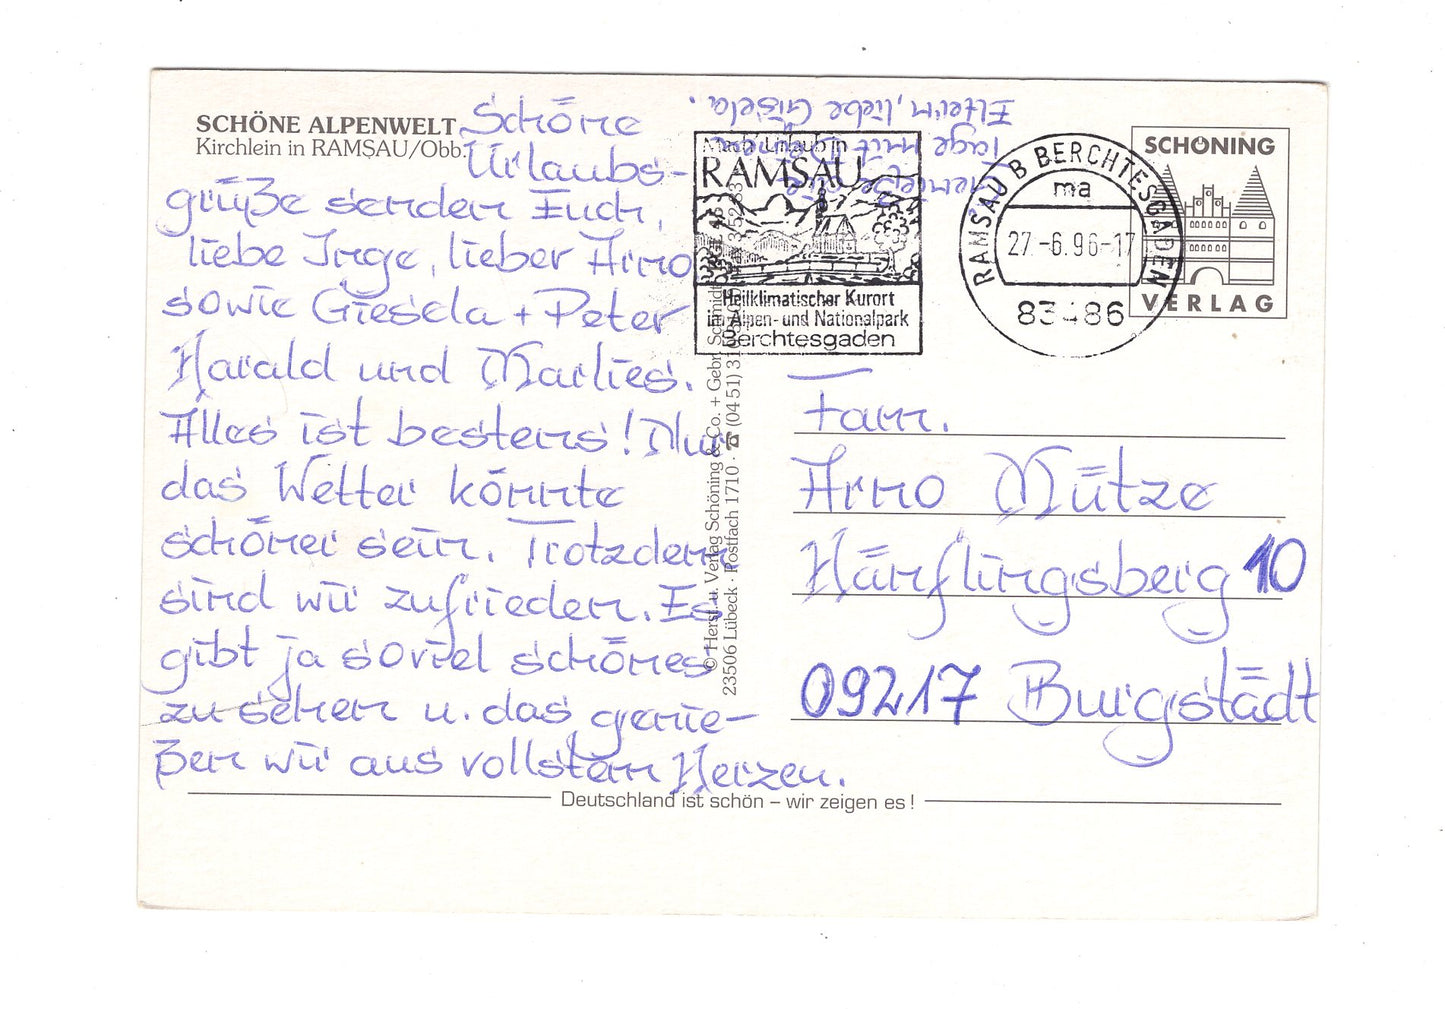 SCHÖNE ALPENWELT
Kirchlein in RAMSAU/Obb.
Schöne
Urlaubs-
grüße senden Euch,
liebe Inge, lieber Arno
sowie Giesela + Peter
Harald und Marlies.
Alles ist bestens! Nur
das Wetter könnte
schöner sein. Trotzdem
sind wir zufrieden. Es
gibt ja soviel schönes
zu sehen u. das genie-
ßen wir aus vollstem Herzen.
Genieße die
Tage mit Deinen
Eltern, liebe Gisela.
Mach' Urlaub in
RAMSAU
Heilklimatischer Kurort
im Alpen- und Nationalpark
Berchtesgaden
RAMSAU B BERCHTESGADEN
ma
27.-6.96-17
83486
SCHÖNING
VERLAG
© Herst. u. Verlag Schöning & Co. + Gebr. Schmidt
23506 Lübeck · Postfach 1710 · ☎ (04 51) 3
Fam.
Arno Mütze
Hänflingsberg 10
09217 Burgstädt
Deutschland ist schön – wir zeigen es!